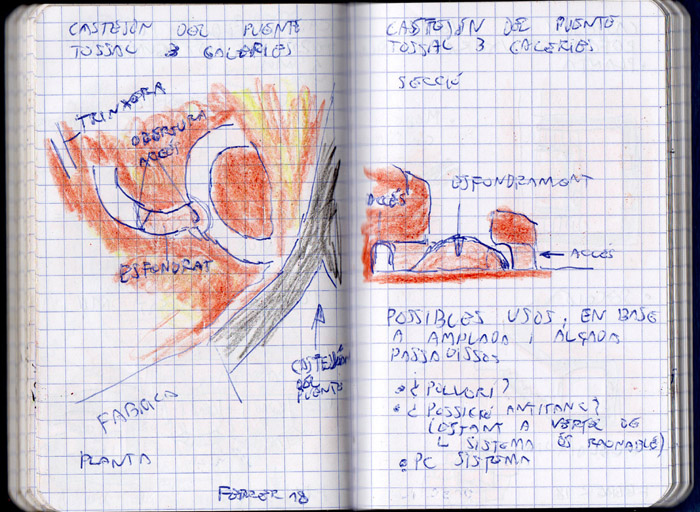 CASTEJÓN DEL PUENTE
TOSSAL 3 GALERIES
TRINXERA
OBERTURA
ACCÉS
ESFONDRAT
CASTEJÓN
DEL
PUENTE
FABRICA
PLANTA
FEBRER 18
CASTEJÓN DEL PUENTE
TOSSAL 3 GALERIES
SECCIÓ
ACCÉS
ESFONDRAMENT
ACCÉS
POSSIBLES USOS, EN BASE
A AMPLADA I ALÇADA
PASSADISSOS
¿POLVORÍ?
¿POSSICIÓ ANTITANC?
(OSTANT A VERTÉ DE
L SISTEMA ÉS RAONABLE)
PC SISTEMA